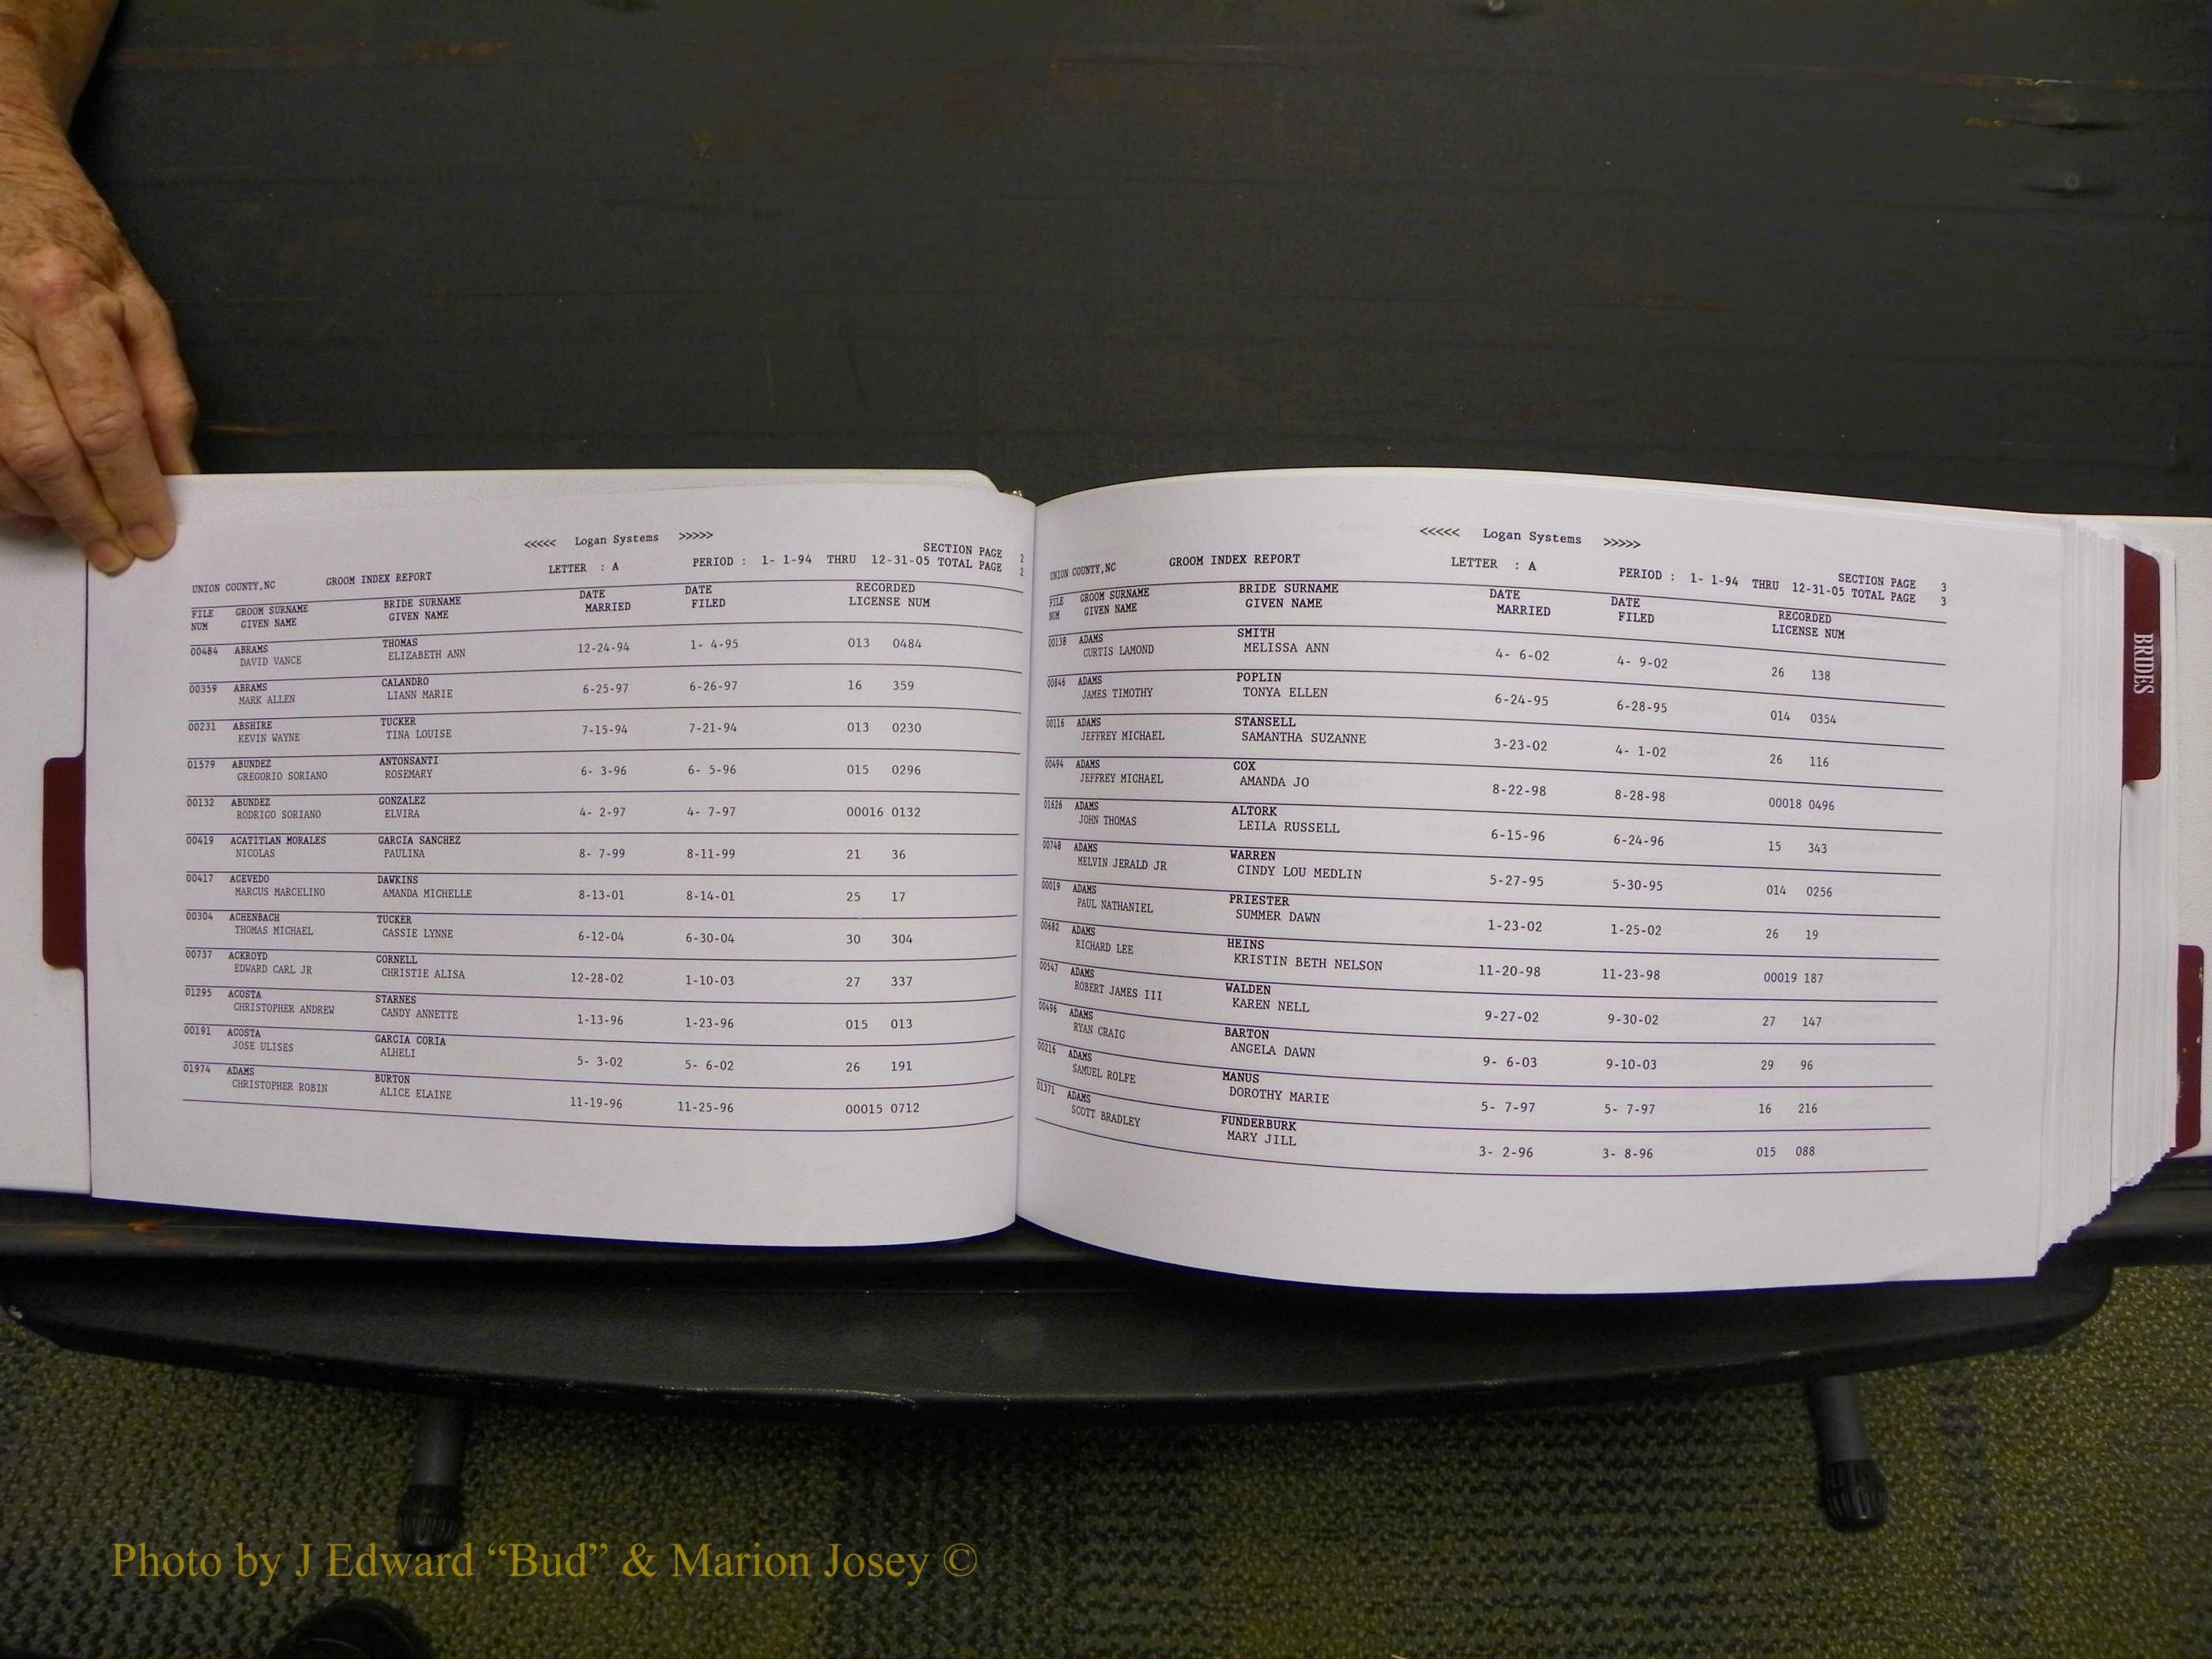 <<<<< Logan Systems >>>>>
SECTION PAGE 2
UNION COUNTY,NC GROOM INDEX REPORT LETTER : A PERIOD : 1- 1-94 THRU 12-31-05 TOTAL PAGE 2
FILE GROOM SURNAME BRIDE SURNAME DATE DATE RECORDED
NUM GIVEN NAME GIVEN NAME MARRIED FILED LICENSE NUM
00484 ABRAMS THOMAS
DAVID VANCE ELIZABETH ANN 12-24-94 1- 4-95 013 0484
00359 ABRAMS CALANDRO
MARK ALLEN LIANN MARIE 6-25-97 6-26-97 16 359
00231 ABSHIRE TUCKER
KEVIN WAYNE TINA LOUISE 7-15-94 7-21-94 013 0230
01579 ABUNDEZ ANTONSANTI
GREGORIO SORIANO ROSEMARY 6- 3-96 6- 5-96 015 0296
00132 ABUNDEZ GONZALEZ
RODRIGO SORIANO ELVIRA 4- 2-97 4- 7-97 00016 0132
00419 ACATITLAN MORALES GARCIA SANCHEZ
NICOLAS PAULINA 8- 7-99 8-11-99 21 36
00417 ACEVEDO DAWKINS
MARCUS MARCELINO AMANDA MICHELLE 8-13-01 8-14-01 25 17
00304 ACHENBACH TUCKER
THOMAS MICHAEL CASSIE LYNNE 6-12-04 6-30-04 30 304
00737 ACKROYD CORNELL
EDWARD CARL JR CHRISTIE ALISA 12-28-02 1-10-03 27 337
01295 ACOSTA STARNES
CHRISTOPHER ANDREW CANDY ANNETTE 1-13-96 1-23-96 015 013
00191 ACOSTA GARCIA CORIA
JOSE ULISES ALHELI 5- 3-02 5- 6-02 26 191
01974 ADAMS BURTON
CHRISTOPHER ROBIN ALICE ELAINE 11-19-96 11-25-96 00015 0712
<<<<< Logan Systems >>>>>
SECTION PAGE 3
UNION COUNTY,NC GROOM INDEX REPORT LETTER : A PERIOD : 1- 1-94 THRU 12-31-05 TOTAL PAGE 3
FILE GROOM SURNAME BRIDE SURNAME DATE DATE RECORDED
NUM GIVEN NAME GIVEN NAME MARRIED FILED LICENSE NUM
00138 ADAMS SMITH
CURTIS LAMOND MELISSA ANN 4- 6-02 4- 9-02 26 138
00846 ADAMS POPLIN
JAMES TIMOTHY TONYA ELLEN 6-24-95 6-28-95 014 0354
00116 ADAMS STANSELL
JEFFREY MICHAEL SAMANTHA SUZANNE 3-23-02 4- 1-02 26 116
00494 ADAMS COX
JEFFREY MICHAEL AMANDA JO 8-22-98 8-28-98 00018 0496
01626 ADAMS ALTORK
JOHN THOMAS LEILA RUSSELL 6-15-96 6-24-96 15 343
00748 ADAMS WARREN
MELVIN JERALD JR CINDY LOU MEDLIN 5-27-95 5-30-95 014 0256
00019 ADAMS PRIESTER
PAUL NATHANIEL SUMMER DAWN 1-23-02 1-25-02 26 19
00682 ADAMS HEINS
RICHARD LEE KRISTIN BETH NELSON 11-20-98 11-23-98 00019 187
00547 ADAMS WALDEN
ROBERT JAMES III KAREN NELL 9-27-02 9-30-02 27 147
00496 ADAMS BARTON
RYAN CRAIG ANGELA DAWN 9- 6-03 9-10-03 29 96
00216 ADAMS MANUS
SAMUEL ROLFE DOROTHY MARIE 5- 7-97 5- 7-97 16 216
01371 ADAMS FUNDERBURK
SCOTT BRADLEY MARY JILL 3- 2-96 3- 8-96 015 088
BRIDES
Photo by J Edward “Bud” & Marion Josey ©